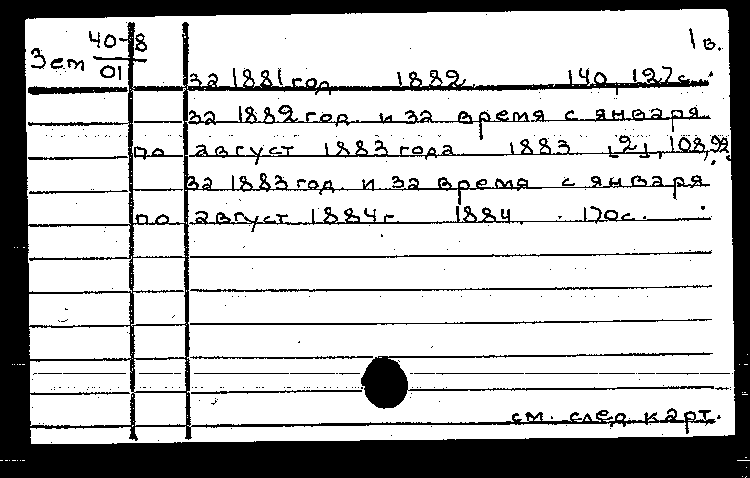 40-8 1в.
Зет 01
за 1881 год 1882 140, 127 с.
за 1882 год и за время с января
по август 1883 года 1883 [2], 108, 92
за 1883 год и за время с января
по август 1884 г. 1884. 170 с.
см. след карт.